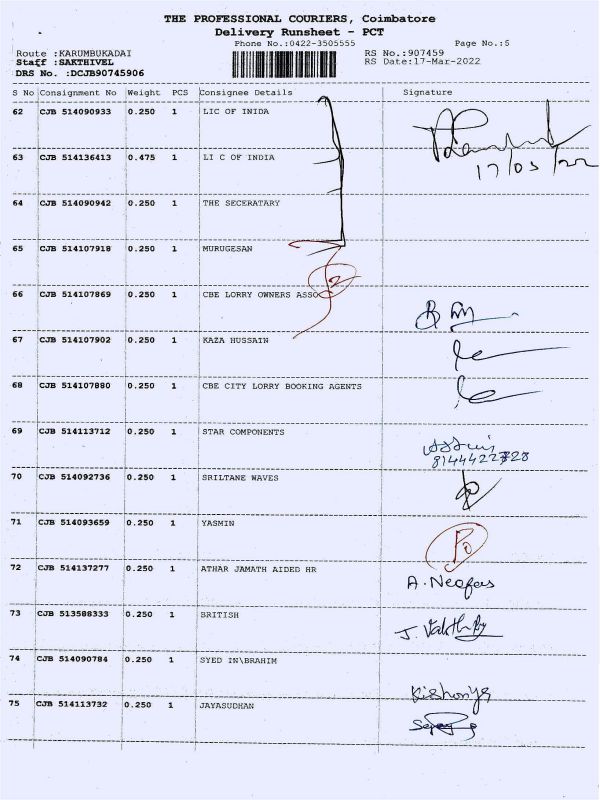 THE PROFESSIONAL COURIERS, Coimbatore
Delivery Runsheet - PCT
Phone No.:0422-3505555 Page No.:5
Route :KARUMBUKADAI RS No.:907459
Staff :SAKTHIVEL RS Date:17-Mar-2022
DRS No. :DCJB90745906
S No Consignment No Weight PCS Consignee Details Signature
62 CJB 514090933 0.250 1 LIC OF INIDA
17/03/22
63 CJB 514136413 0.475 1 LI C OF INDIA
64 CJB 514090942 0.250 1 THE SECERATARY
65 CJB 514107918 0.250 1 MURUGESAN
66 CJB 514107869 0.250 1 CBE LORRY OWNERS ASSOC
67 CJB 514107902 0.250 1 KAZA HUSSAIN
68 CJB 514107880 0.250 1 CBE CITY LORRY BOOKING AGENTS
69 CJB 514113712 0.250 1 STAR COMPONENTS
8144422728
70 CJB 514092736 0.250 1 SRILTANE WAVES
71 CJB 514093659 0.250 1 YASMIN
72 CJB 514137277 0.250 1 ATHAR JAMATH AIDED HR
A. Neofas
73 CJB 513588333 0.250 1 BRITISH
74 CJB 514090784 0.250 1 SYED IN\BRAHIM
Kishoriya
75 CJB 514113732 0.250 1 JAYASUDHAN